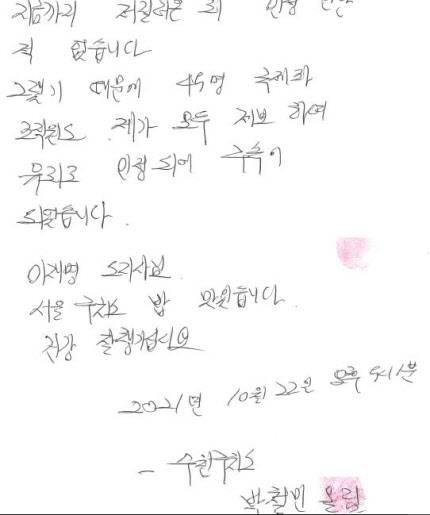 지금까지 저질러온 죄 인정 안한
적 없습니다
그렇기 때문에 국제파
조직원도 제가 모두 제보 하여
유죄로 인정 되어 구속이
되었습니다.
이재명 도지사님
서울 구치소 밥 맛있습니다.
건강 잘챙기십시오
2021년 10월 22일 오후
- 수원구치소
박철민 올림